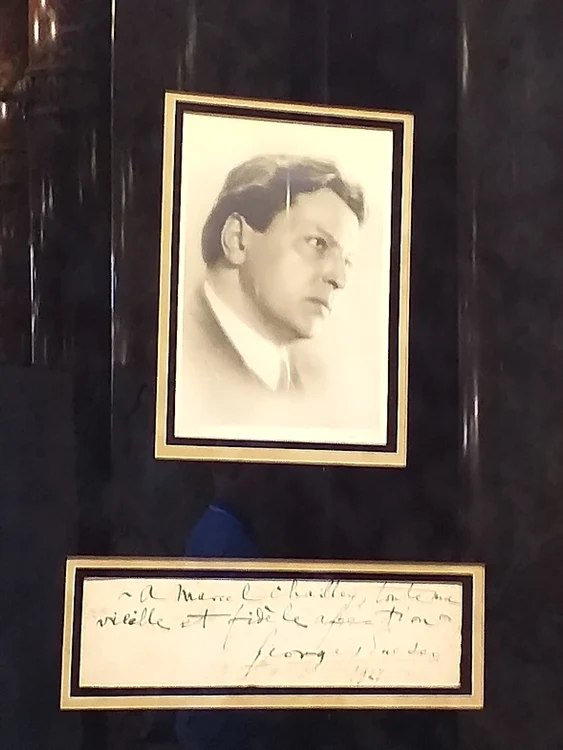 ~ A Marcel Chailley, toute ma
vieille et fidèle affection
Georges Enesco
1928